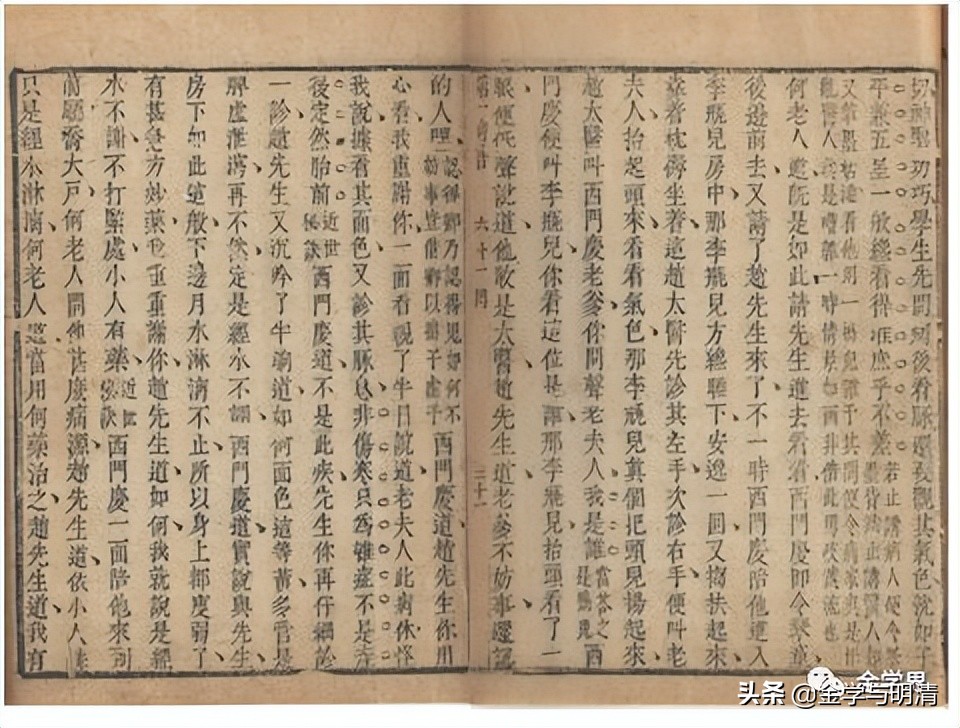 切神聖功巧學生先問病後看脉還要觀其氣色就如子
平兼五星一般纔看得准庶乎不差
何老人道既是如此請先生進去看看西門慶即令琴童
後邊說去又請了趙先生來了不一時西門慶陪他進入
李瓶兒房中那李瓶兒方纔睡下安逸一回又搊扶起來
靠着枕褥坐着這趙太醫先診其左手次診右手便叫老
夫人抬起頭來看看氣色那李瓶兒真個把頭兒揚起來
趙太醫叫西門慶老爹你問聲老夫人我是誰西
門慶便叫李瓶兒你看這位是誰那李瓶兒抬頭看了一
眼便低聲說道他敢是太醫趙先生道老爹不妨事還認
第一奇書 六十一回 三十二
的人哩西門慶道趙先生你用
心看我重謝你一面看視了半日說道老夫人此病休怪
我說據看其面色又診其脉息非傷寒只為雜症不是產
後定然胎前近世秘訣西門慶道不是此疾先生你再仔細診
一診趙先生又沉吟了半晌道如何面色這等黃多管是
脾虛泄瀉再不然定是經水不調西門慶道實說與先生
房下如此這般下邊月水淋漓不止所以身上都瘦弱了
有甚急方妙藥我重重謝你趙先生道如何我就說是經
水不調不打緊處小人有藥近世秘訣西門慶一面陪他來到
前廳喬大戶何老人問他甚麼病源趙先生道依小人講
只是經水淋漓何老人道當用何藥治之趙先生道我有
金学界
头条 @金学与明清